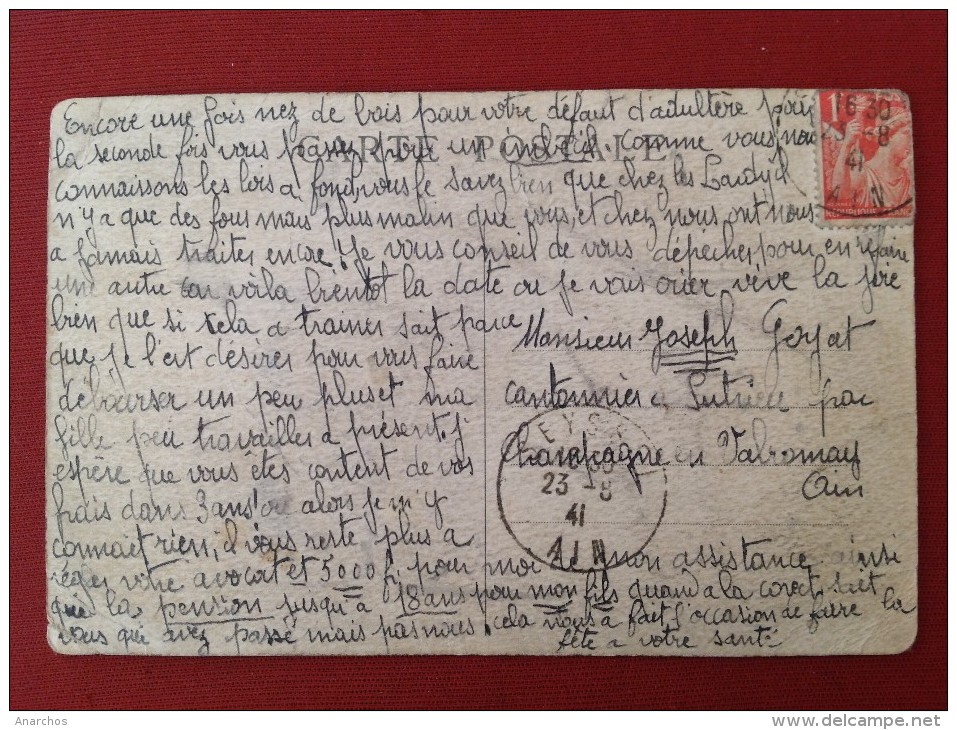 Encore une fois nez de bois pour votre défaut d'adultère pour
la seconde fois vous passez pour un imbécil. comme vous nous
CARTE POSTALE
connaissons les lois a fond, vous le savez bien que chez les
n'y a que des fous mais plus malin que vous, et chez nous ont nous
a jamais traiter encore! Je vous conseil de vous dépécher pour en refaire
une autre car voila bientot la date ou je vais crier vive la
bien que si cela a trainer sait parce
que je l'est désirer pour vous faire
débourser un peu plus et ma
fille peu travailler a présent. j'
espère que vous êtes content de vos
frais dans 3 ans! ou alors je m'y
connait rien, il vous reste plus a
régler votre avocat et 5000 f. pour moi de mon assistance ainsi
que la pension jusqu'à 18 ans pour mon fils quand a la corect. sait
vous qui avez passé mais pas nous. cela nous a fait l'occasion de faire la
fête a votre santé
Monsieur Joseph Goyat
cantonnier a par
Champagne en Valromay
Ain
1F
16 30
23 -8
41
AIN
RÉPUBLIQUE FRANC
16 30
23 -8
41
AIN
Anarchos
www.delcampe.net